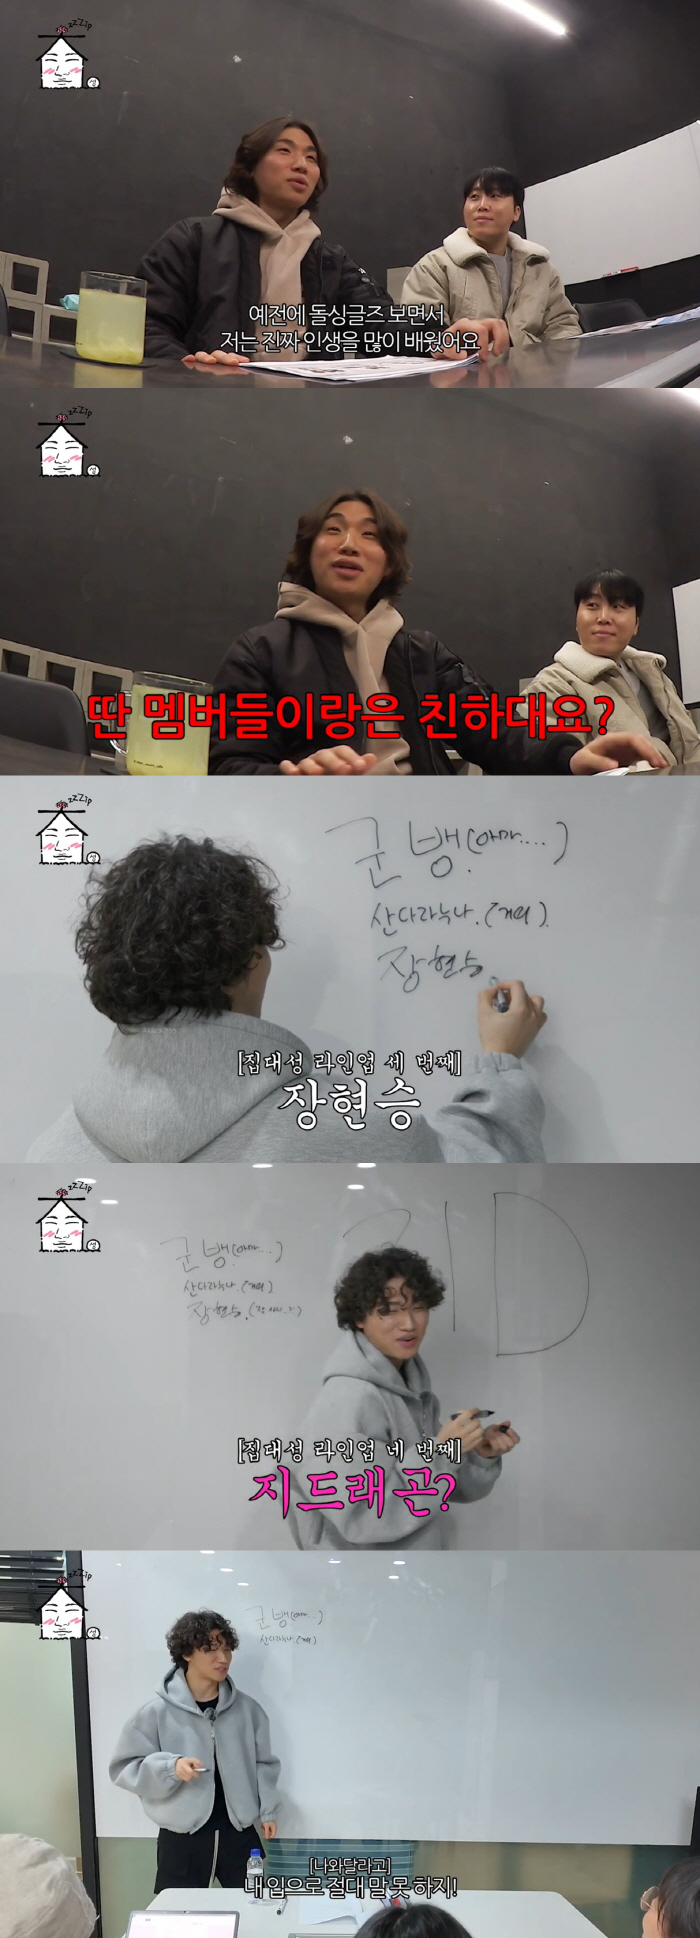 zzZip
성
예전에 돌싱글즈 보면서
저는 진짜 인생을 많이 배웠어요
zzZip
성
딴 멤버들이랑은 친하대요?
zzZip
성
군 뱅(아마....)
산다라누나.(거의).
장현승
[집대성 라인업 세 번째]
장현승
zzZip
성
군 뱅(아마...)
산다라누나.(거의).
장현승.
D
[집대성 라인업 네 번째]
지드래곤?
zzZip
성
군 뱅(아마...)
산다라누나.(거의)
[나와달라고]
내 입으로 절대 말 못 하지!